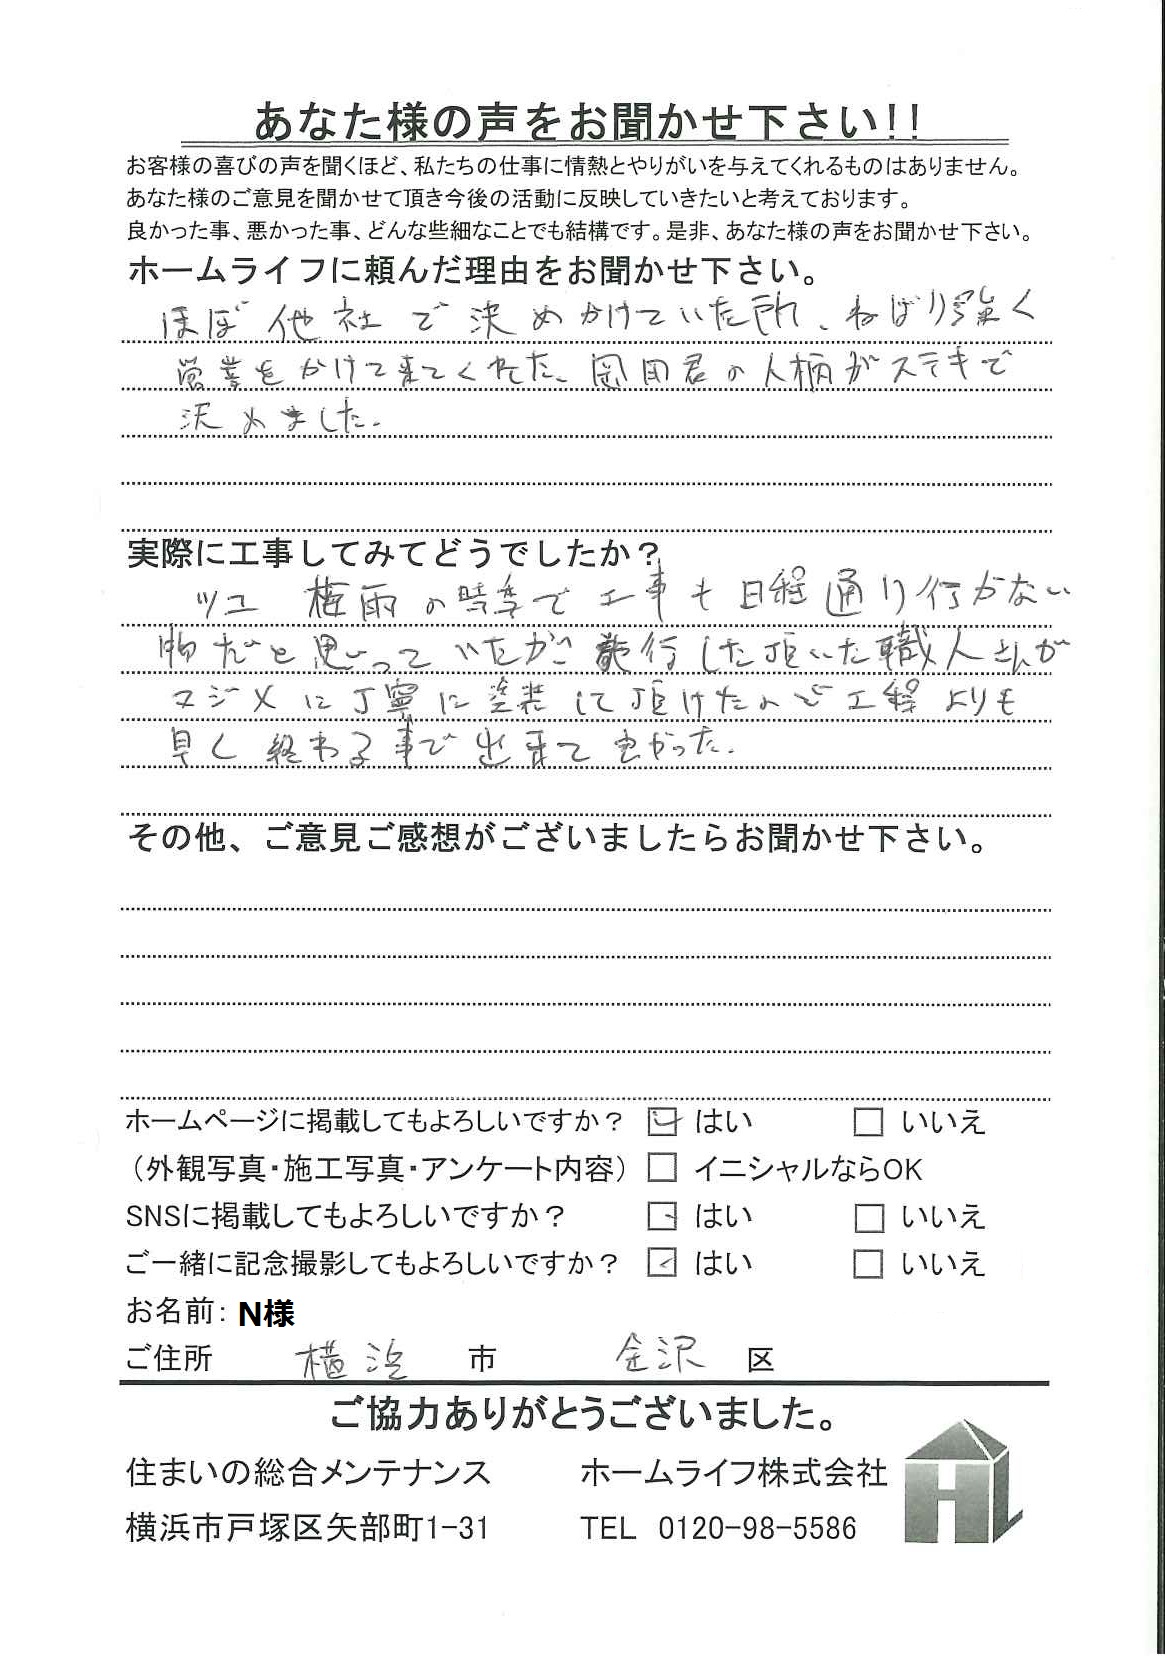 あなた様の声をお聞かせ下さい!!
お客様の喜びの声を聞くほど、私たちの仕事に情熱とやりがいを与えてくれるものはありません。
あなた様のご意見を聞かせて頂き今後の活動に反映していきたいと考えております。
良かった事、悪かった事、どんな些細なことでも結構です。是非、あなた様の声をお聞かせ下さい。
ホームライフに頼んだ理由をお聞かせ下さい。
ほぼ他社で決めかけていた所、ねばり強く
営業をかけて来てくれた、岡田君の人柄がステキで
決めました。
実際に工事してみてどうでしたか？
ツユ 梅雨の時季で工事も日程通り行かない
物だと思っていたが 施行した頂いた職人さんが
マジメに丁寧に塗装して頂けたので工程よりも
早く終わる事で出来て良かった。
その他、ご意見ご感想がございましたらお聞かせ下さい。
ホームページに掲載してもよろしいですか？ はい いいえ
（外観写真・施工写真・アンケート内容） イニシャルならOK
SNSに掲載してもよろしいですか？ はい いいえ
ご一緒に記念撮影してもよろしいですか？ はい いいえ
お名前： N様
ご住所 横浜 市 金沢 区
ご協力ありがとうございました。
住まいの総合メンテナンス ホームライフ株式会社
横浜市戸塚区矢部町1-31 TEL 0120-98-5586
HL